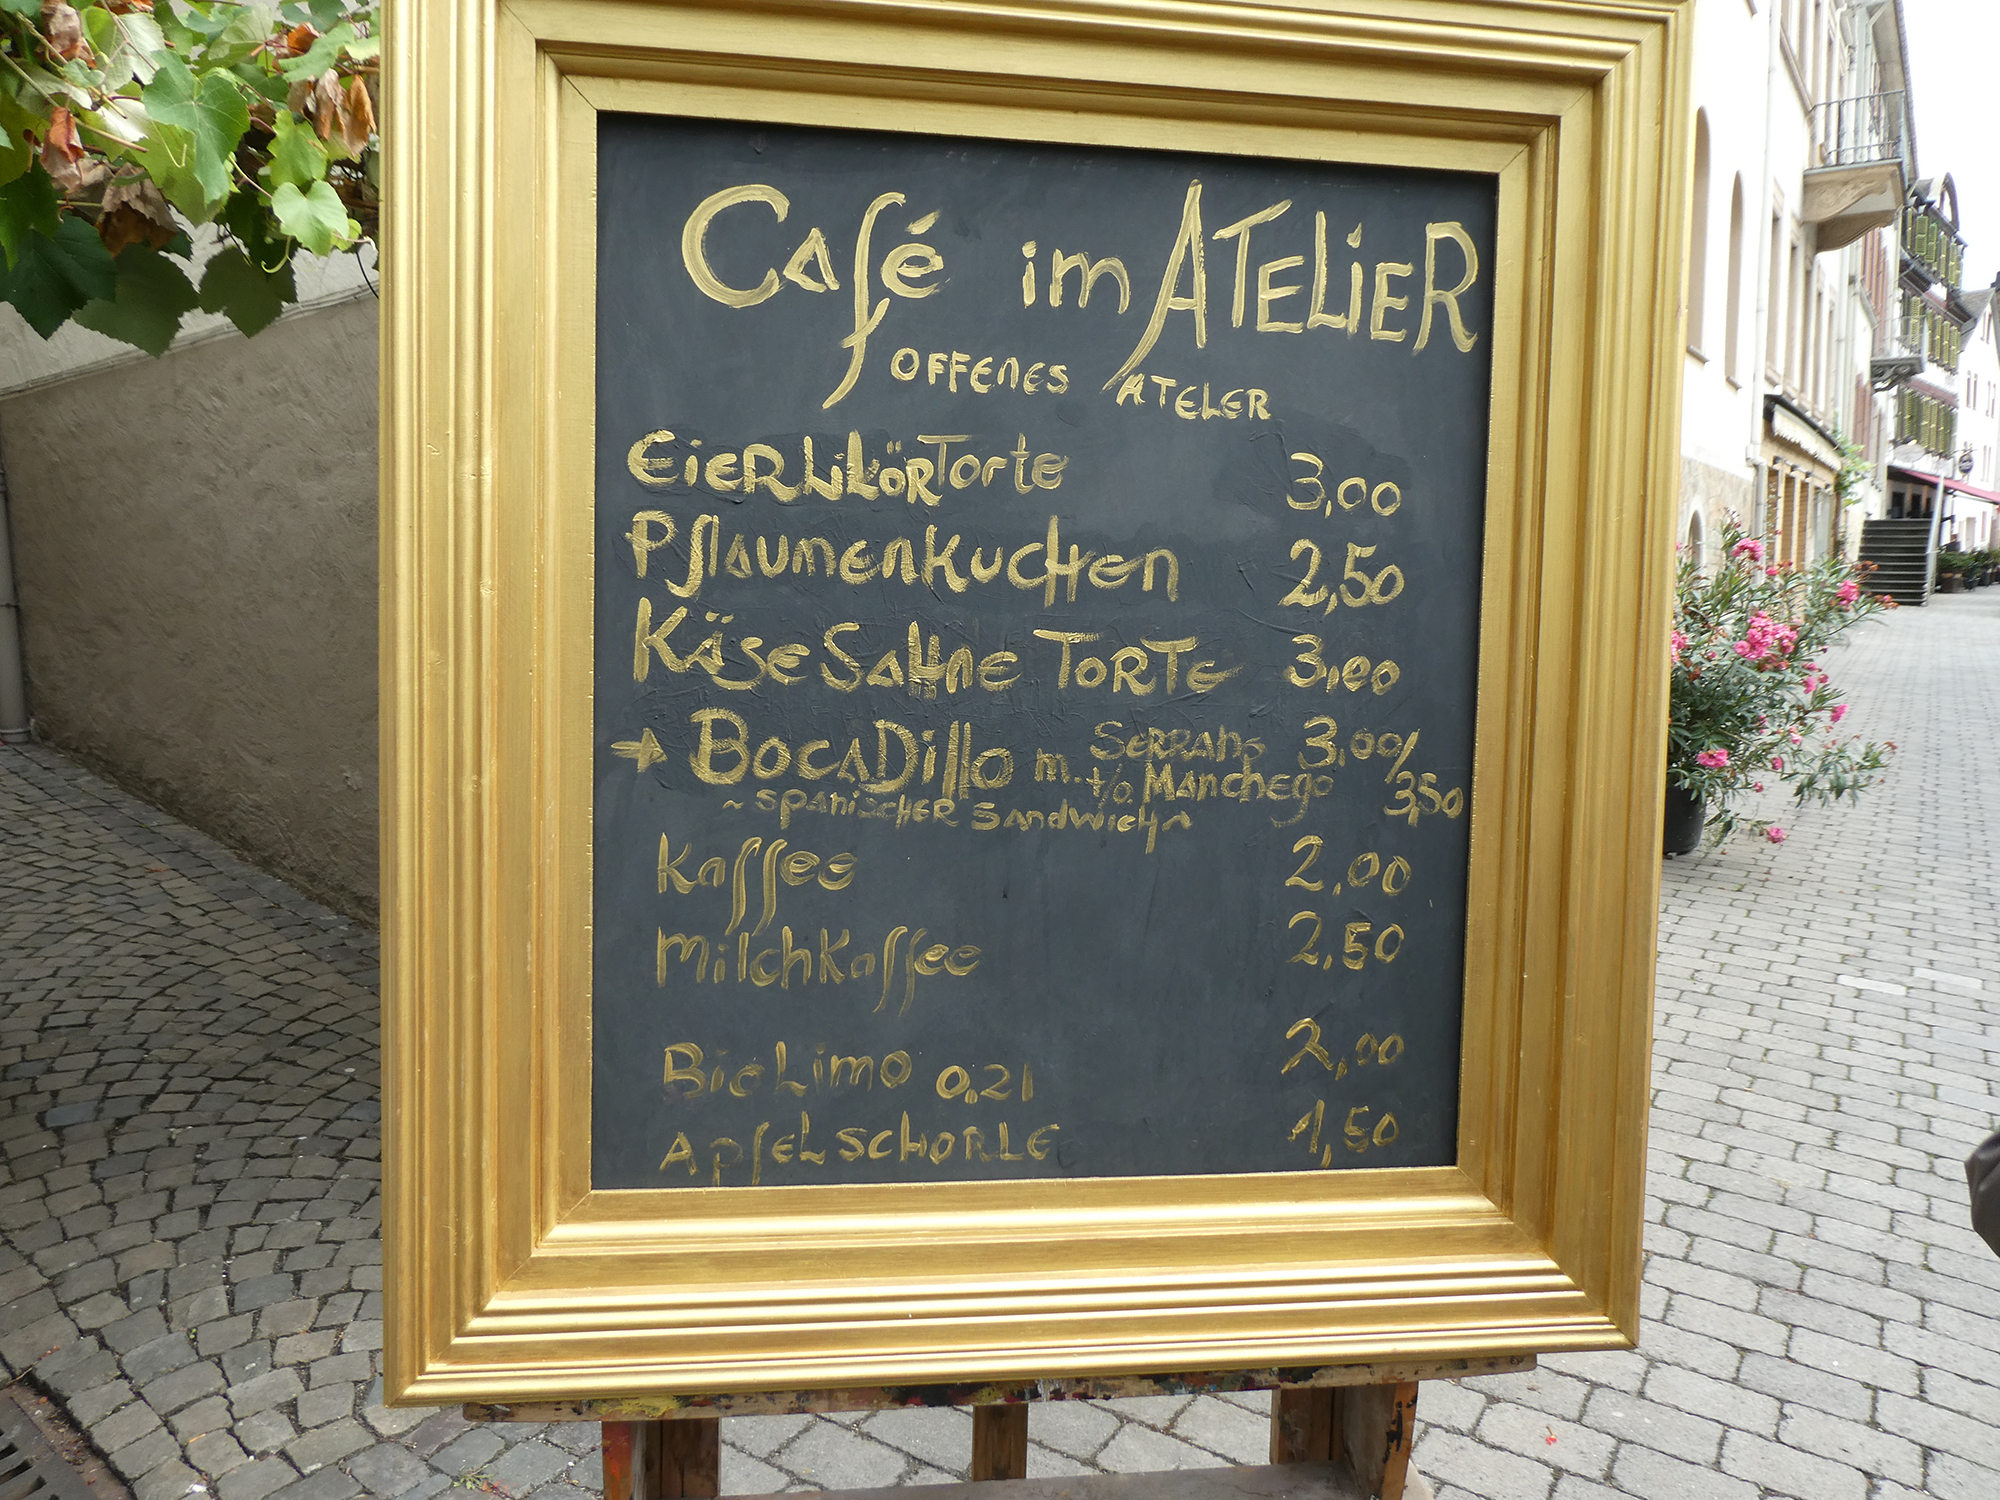 Café im ATELiER
OFFENES ATELER
EiERLiKÖRTorte 3,00
PflAumenkuchen 2,50
KäseSahne TORTE 3,00
→ BOCADillO m. SERRANO 3,00/
t/o. MANchego 3,50
~ spanischer Sandwich ~
Kaffee 2,00
Milchkaffee 2,50
BioLimo 0,2l 2,00
APfELSCHORLE 1,50